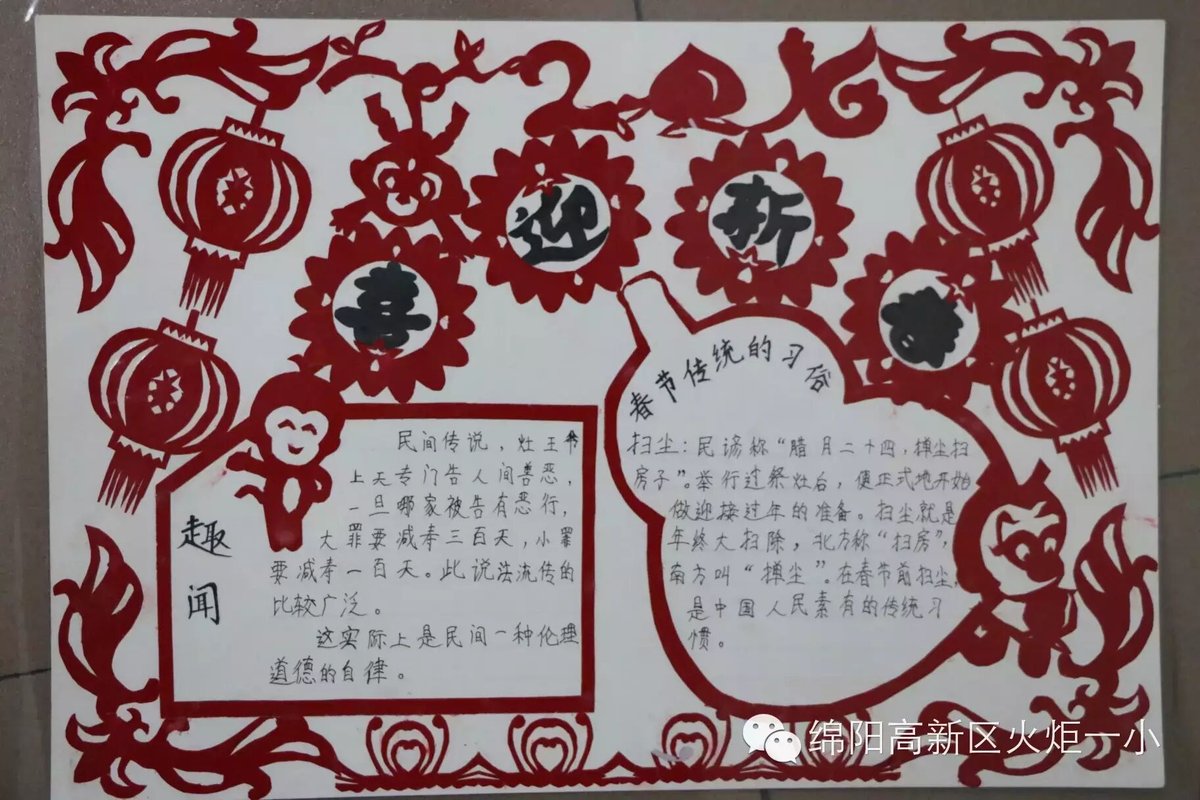 喜迎新
趣闻
民间传说，灶王爷
上天专门告人间善恶，
一旦哪家被告有恶行，
大罪要减寿三百天，小罪
要减寿一百天。此说法流传的
比较广泛。
这实际上是民间一种伦理
道德的自律。
春节传统的习俗
扫尘：民谚称“腊月二十四，掸尘扫
房子”。举行过祭灶后，便正式地开始
做迎接过年的准备。扫尘就是
年终大扫除，北方称“扫房”，
南方叫“掸尘”。在春节前扫尘，
是中国人民素有的传统习
惯。
绵阳高新区火炬一小